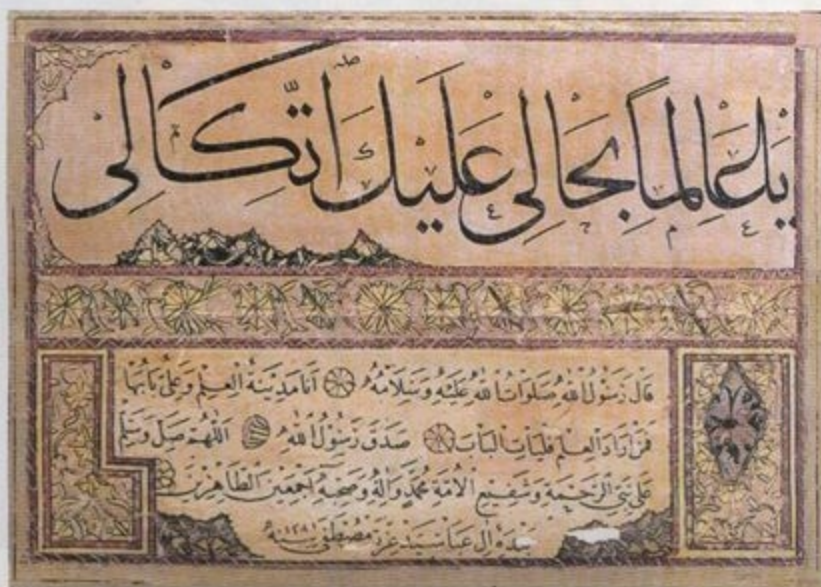 يا عالماً بحالي عليك اتكالي
قال رسول الله صلوات الله عليه وسلامه انا مدينة العلم وعلي بابها
فمن اراد العلم فليات الباب صدق رسول الله اللهم صل وسلم
على نبي الرحمة وشفيع الأمة محمد وآله وصحبه اجمعين الطاهرين
آل عبا سيد عزت مصطفى سنه ١٢٨١